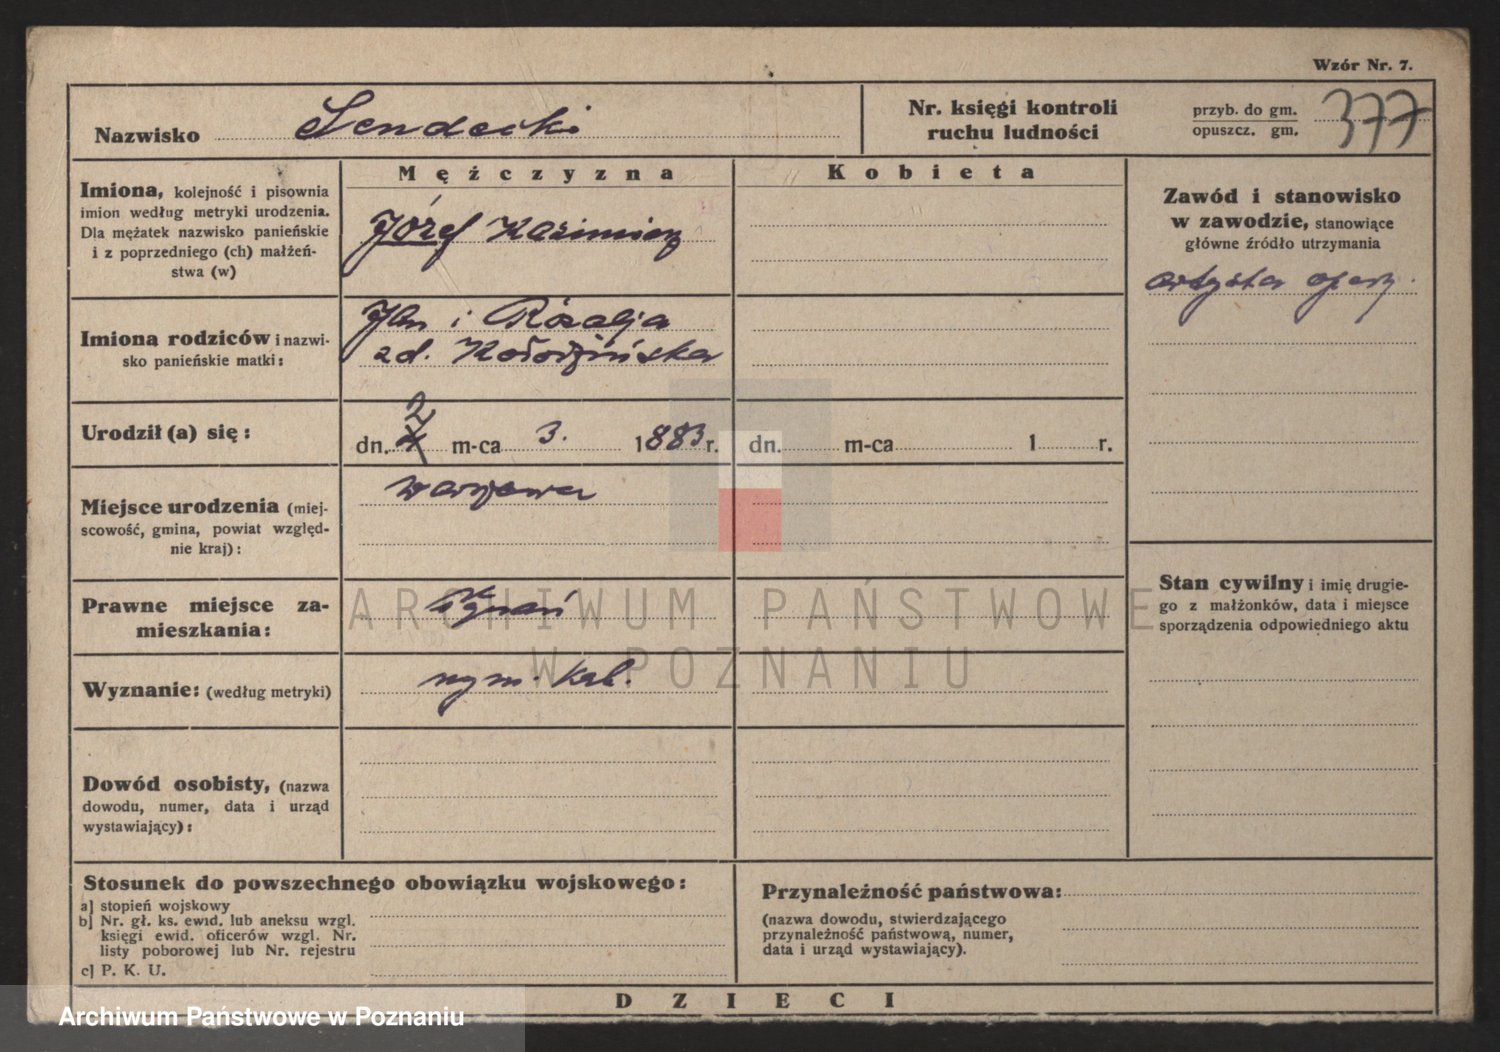 Wzór Nr. 7.
Nazwisko Sendecki
Nr. księgi kontroli
ruchu ludności
przyb. do gm.
opuszcz. gm.
377
Mężczyzna
Kobieta
Imiona, kolejność i pisownia
imion według metryki urodzenia.
Dla mężatek nazwisko panieńskie
i z poprzedniego (ch) małżeń-
stwa (w)
Józef Kazimierz
Zawód i stanowisko
w zawodzie, stanowiące
główne źródło utrzymania
artysta opery
Imiona rodziców i nazwi-
sko panieńskie matki:
Jan i Rozalja
zd. Kołodzińska
Urodził (a) się:
dn. 2 m-ca 3. 1883 r.
dn. m-ca 1 r.
Miejsce urodzenia (miej-
scowość, gmina, powiat względ-
nie kraj):
Warszawa
Stan cywilny i imię drugie-
go z małżonków, data i miejsce
sporządzenia odpowiedniego aktu
Prawne miejsce za-
mieszkania:
Poznań
Wyznanie: (według metryki)
rzym. kat.
Dowód osobisty, (nazwa
dowodu, numer, data i urząd
wystawiający):
Stosunek do powszechnego obowiązku wojskowego:
a] stopień wojskowy
b] Nr. gł. ks. ewid. lub aneksu wzgl.
księgi ewid. oficerów wzgl. Nr.
listy poborowej lub Nr. rejestru
c] P. K. U.
Przynależność państwowa:
(nazwa dowodu, stwierdzającego
przynależność państwową, numer,
data i urząd wystawiający).
DZIECI
ARCHIWUM PAŃSTWOWE
W POZNANIU
Archiwum Państwowe w Poznaniu